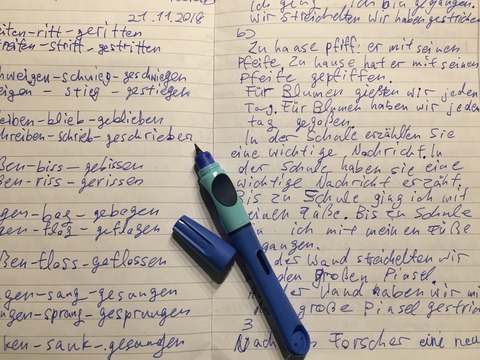 21.11.2018
eiten-ritt-geritten
reiten-stritt-gestritten
hweigen-schwieg-geschwiegen
eigen - stieg - gestiegen
eiben-blieb-geblieben
hreiben-schieb-geschrieben
ßen-biss-gebissen
ßen-riss-gerissen
gen-bog-gebogen
en-flog-geflogen
ßen-floss-geflossen
ngen-sang-gesungen
ngen-sprang-gesprungen
ken-sank-gesunken
ich bin gegangen.
wir streichelten wir haben gestrichen
b)
Zu haase pfiff er mit seinen
Pfeife. Zu hause hat er mit seinen
Pfeife gepfiffen.
Für Blumen gießen wir jeden
Tag. Für Blumen haben wir jeden
tag gegoßen.
In der Schule erzählten Sie
eine wichtige Nachricht. In
der Schule haben sie eine
wichtige Nachricht erzählt.
Bis zu Schule giag ich mit
einen Füße. Bis zu Schule
in ich mit meinen Füße
gangen.
der Wand streichelten wir
den großen Piasel.
der Wand haben wir mi
große Piasel gestric
3
Nach Forscher eine neu